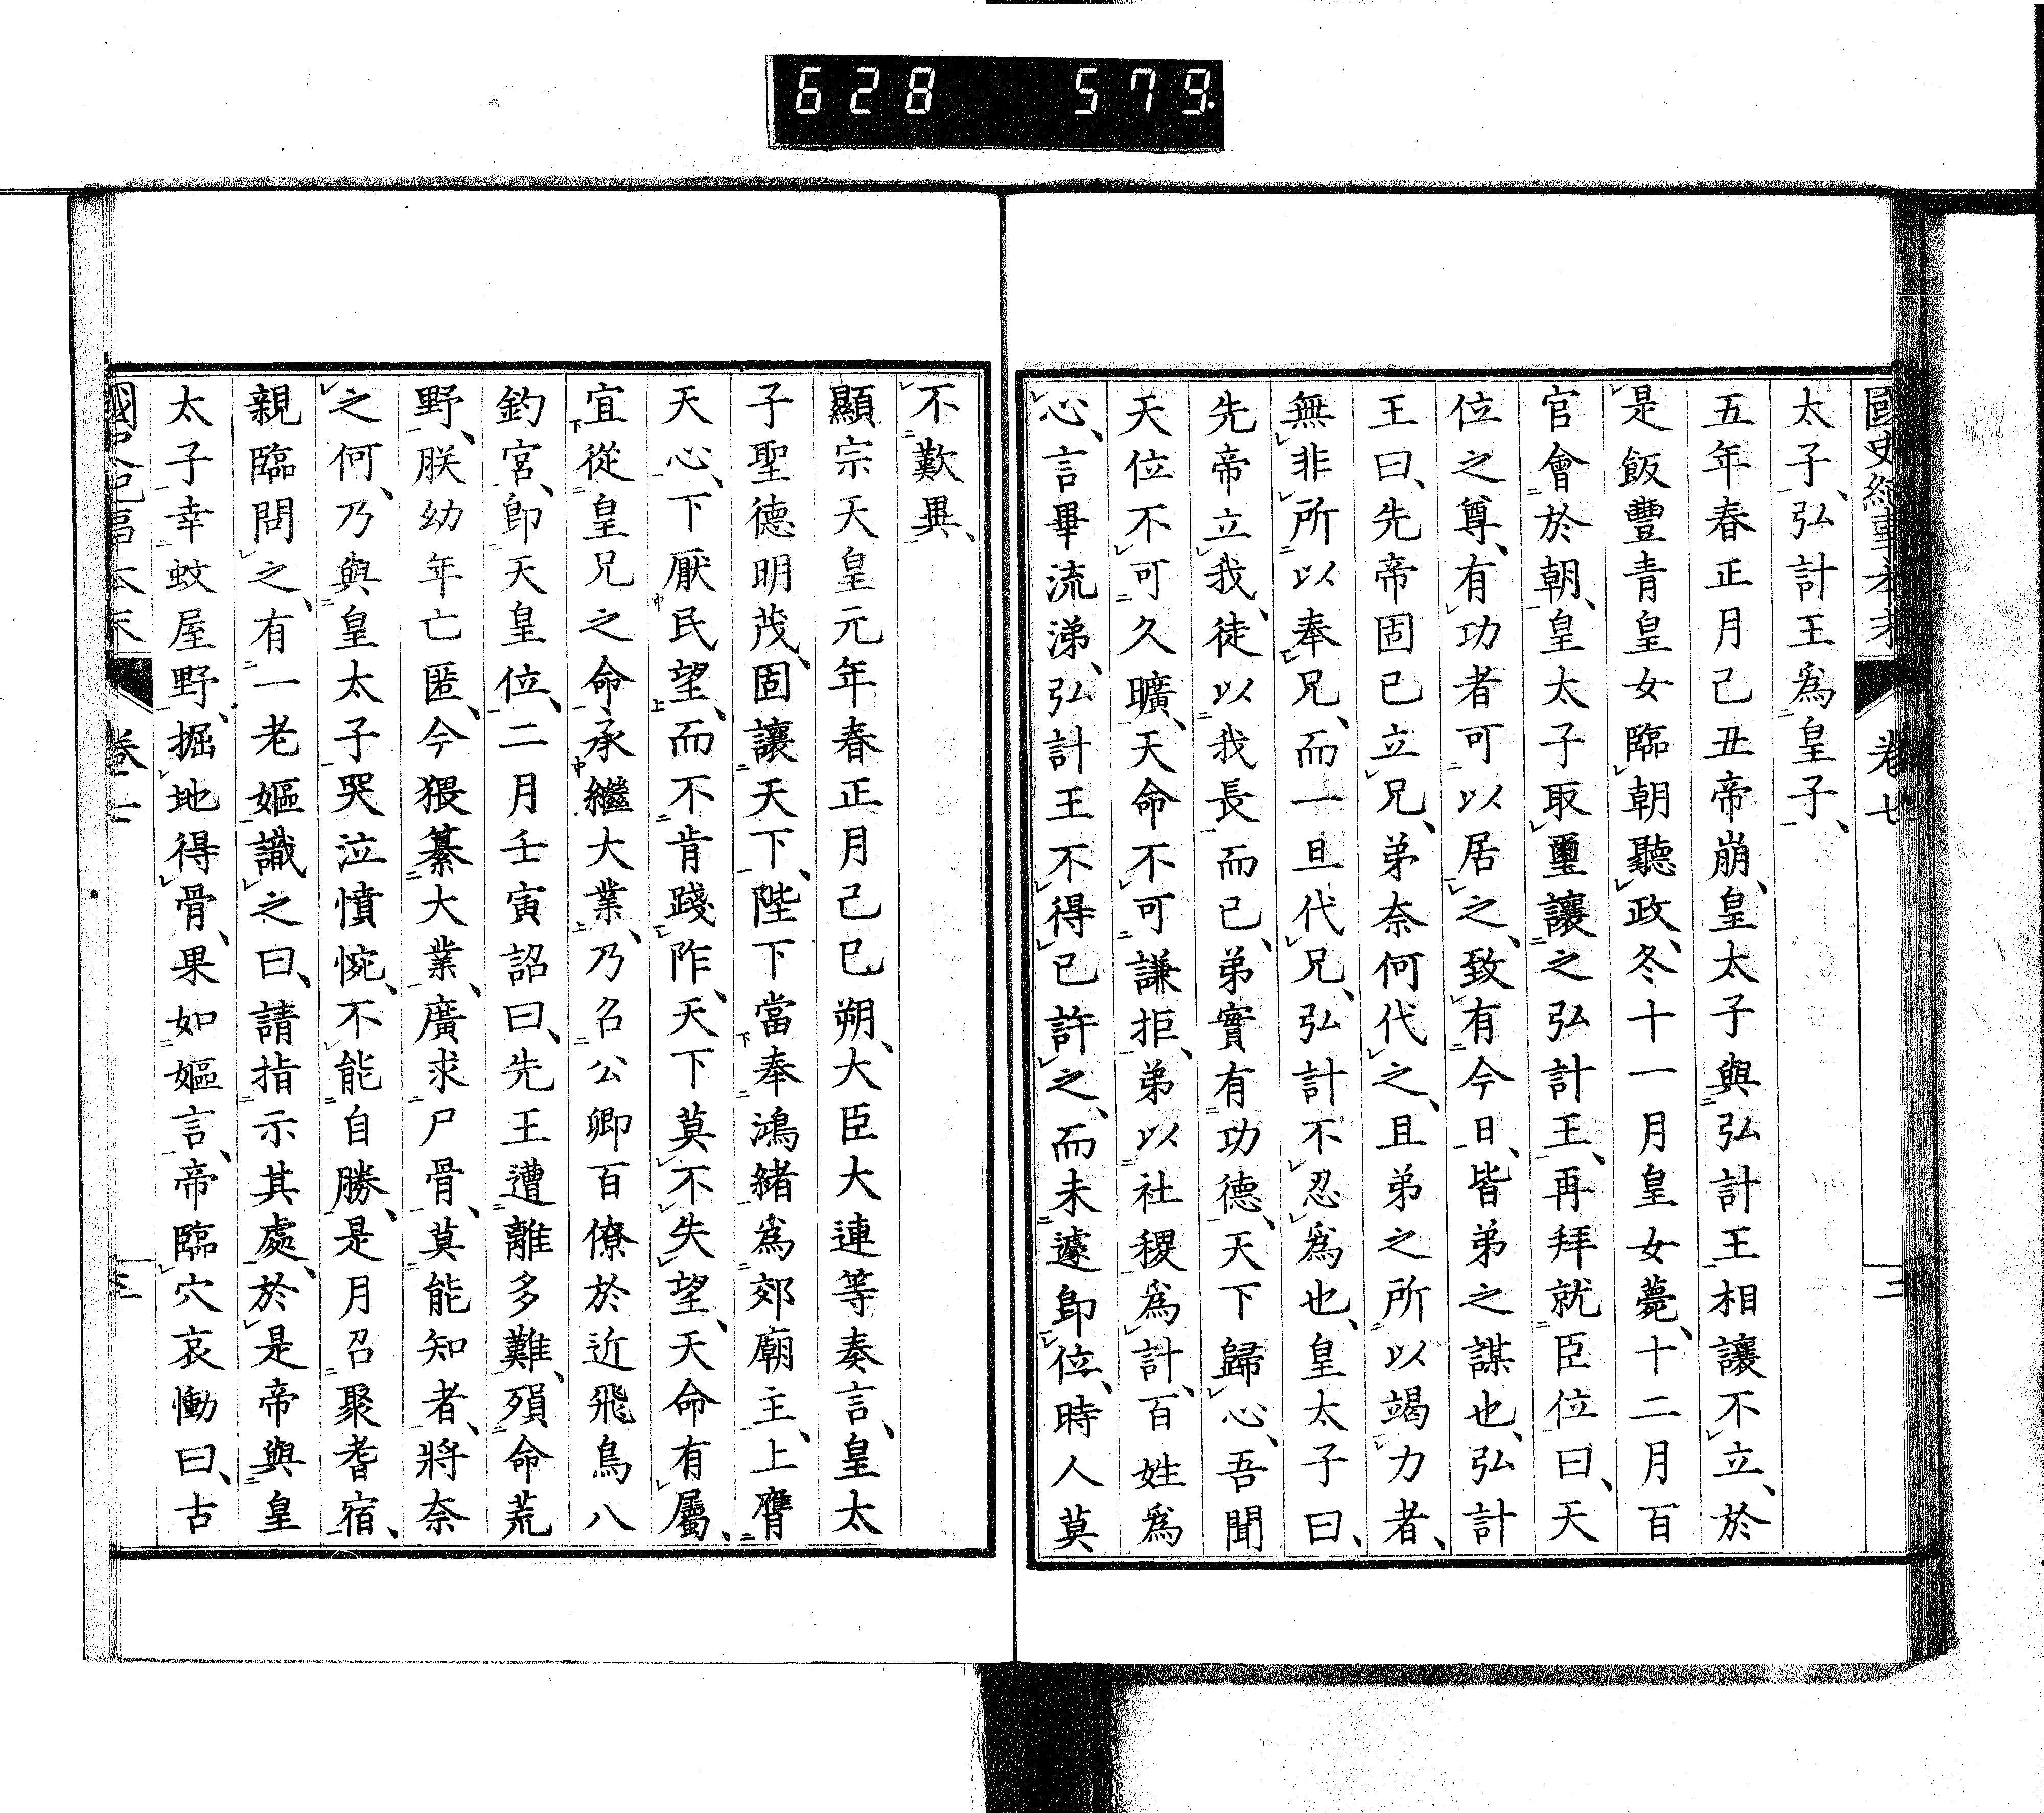 628 579
國史紀事本末 卷七 二
太子、弘計王爲皇子、
五年春正月己丑帝崩、皇太子與弘計王相讓不立、於
是飯豐青皇女臨朝聽政、冬十一月皇女薨、十二月百
官會於朝、皇太子取璽讓之弘計王、再拜就臣位曰、天
位之尊、有功者可以居之、致有今日、皆弟之謀也、弘計
王曰、先帝固已立兄、弟奈何代之、且弟之所以竭力者、
無非所以奉兄、而一旦代兄、弘計不忍爲也、皇太子曰、
先帝立我、徒以我長而已、弟實有功德、天下歸心、吾聞
天位不可久曠、天命不可謙拒、弟以社稷爲計、百姓爲
心、言畢流涕、弘計王不得已許之、而未遽卽位、時人莫
不歎異、
顯宗天皇元年春正月己巳朔、大臣大連等奏言、皇太
子聖德明茂、固讓天下、陛下當奉鴻緒爲郊廟主、上膺
天心、下厭民望、而不肯踐阼、天下莫不失望、天命有屬、
宜從皇兄之命、承繼大業、乃召公卿百僚於近飛鳥八
釣宮、卽天皇位、二月壬寅詔曰、先王遭離多難、殞命荒
野、朕幼年亡匿、今猥纂大業、廣求尸骨、莫能知者、將奈
之何、乃與皇太子哭泣憤惋、不能自勝、是月召聚耆宿、
親臨問之、有一老嫗識之曰、請指示其處、於是帝與皇
太子幸蚊屋野、掘地得骨、果如嫗言、帝臨穴哀慟曰、古